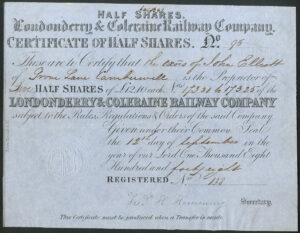 HALF SHARES.
Londonderry & Coleraine Railway Company.
CERTIFICATE OF HALF SHARES. No 95
These are to Certify that the of John Elliott
of Lane Camberwell is the Proprietor of
HALF SHARES of £12.10 each, Nos 17221 to 17225 of
LONDONDERRY & COLERAINE RAILWAY COMPANY
subject to the Rules, Regulations & Orders of the said Company
Given under their Common Seal
the 12th day of September in the
year of our Lord One Thousand Eight
Hundred and forty eight
REGISTERED No
Secretary.
This Certificate must be produced when a Transfer is made.